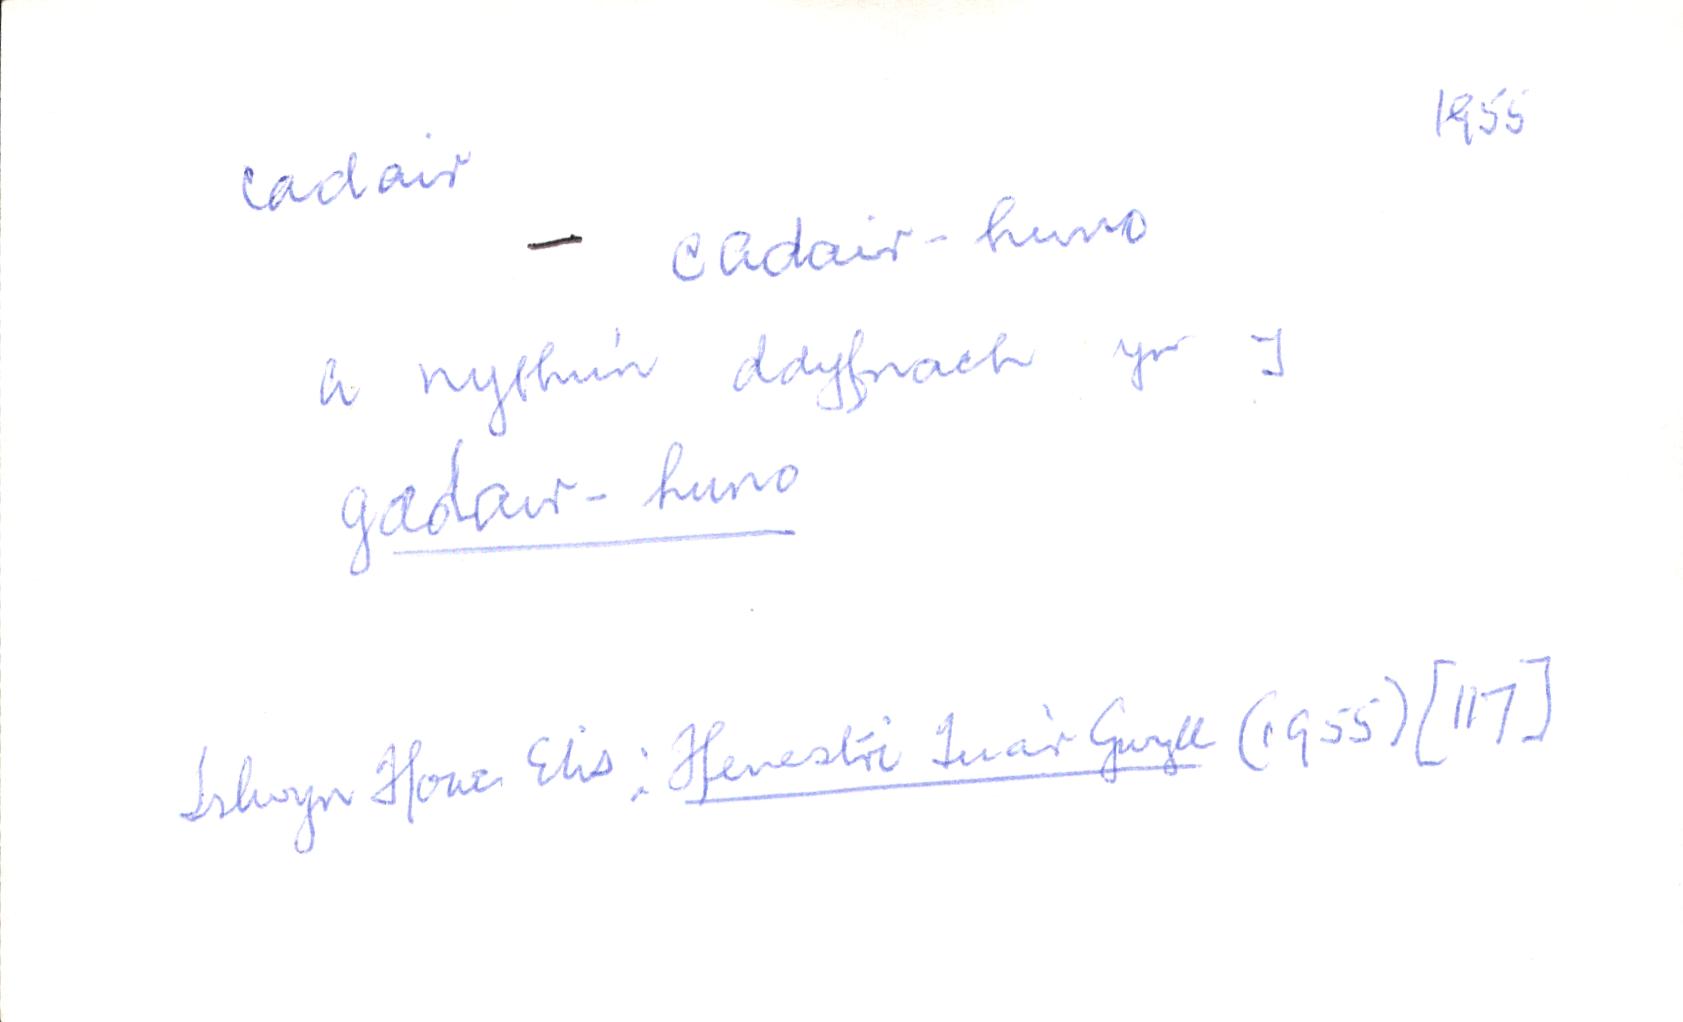 1955
cadair
— cadair-huno
a nythu'n ddyfnach yn y
gadair-huno
Islwyn Ffowc Elis: Ffenestri Tua'r Gwyll (1955) [117]